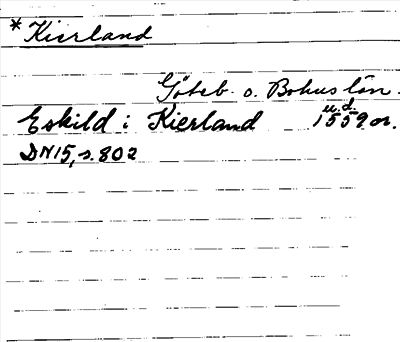 *Kierland
Göteb. o. Bohus län.
Eskild i Kierland u.d. 1559 or.
DN15, s. 802